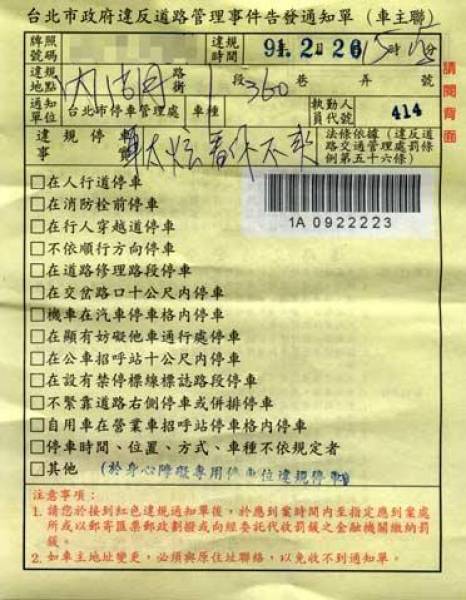 台北市政府違反道路管理事件告發通知單（車主聯）
牌照號碼 違規時間 91.2.26 15時15分
違規地點 內湖 路街 1 段 360 巷 弄 號
通知單位 台北市停車管理處 車種 執勤人員代號 414
違規停車事實 車太炫看你不爽 法條依據（違反道路交通管理處罰條例第五十六條）
請閱背面
1A 0922223
□在人行道停車
□在消防栓前停車
□在行人穿越道停車
□不依順行方向停車
□在道路修理路段停車
□在交岔路口十公尺內停車
□機車在汽車停車格內停車
□在顯有妨礙他車通行處停車
□在公車招呼站十公尺內停車
□在設有禁停標線標誌路段停車
□不緊靠道路右側停車或併排停車
□自用車在營業車招呼站停車格內停車
□停車時間、位置、方式、車種不依規定者
□其他 （於身心障礙專用停車位違規停車）
注意事項：
1. 請您於接到紅色違規通知單後，於應到案時間內至指定應到案處
所或以郵寄匯票郵政劃撥或向經委託代收罰鍰之金融機關繳納罰
鍰。
2. 如車主地址變更，必須與原住址聯絡，以免收不到通知單。